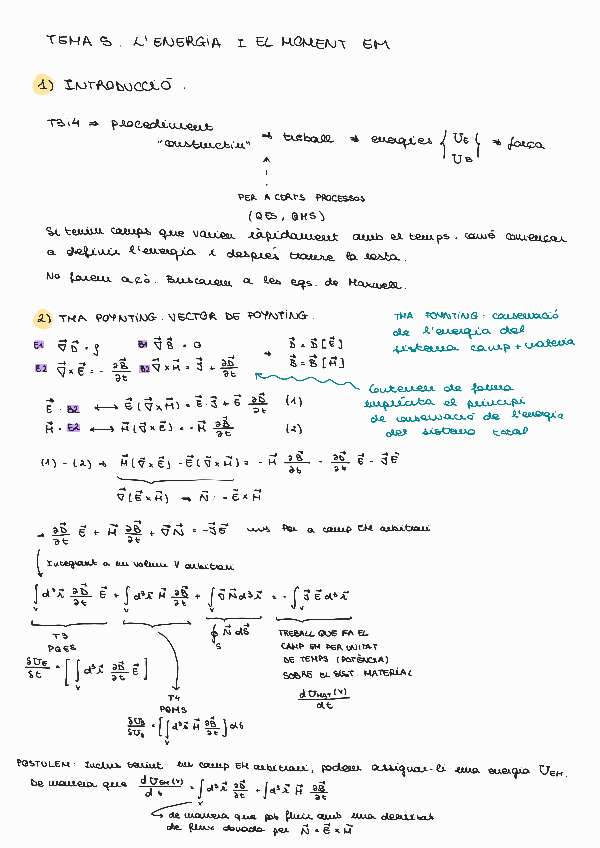 TEMA 5. L'ENERGIA I EL MOMENT EM
1) INTRODUCCIÓ.
T3i4 ⇒ procediment "constructiu" ⇒ treball ⇒ energies { U_E U_B } ⇒ força
PER A CERTS PROCESSOS
(QES, QMS)
Si tenim camps que varien ràpidament amb el temps, caldrà començar
a definir l'energia i després traure la resta.
No farem açò. Buscarem a les eqs. de Maxwell.
2) TMA POYNTING. VECTOR DE POYNTING.
TMA POYNTING: conservació
de l'energia del
sistema camp + matèria
E1 ∇⃗D⃗ = ρ B1 ∇⃗B⃗ = 0 → D⃗ = D⃗[E⃗]
E2 ∇⃗×E⃗ = - ∂B⃗/∂t B2 ∇⃗×H⃗ = J⃗ + ∂D⃗/∂t B⃗ = B⃗[H⃗]
Contenen de forma
implícita el principi
de conservació de l'energia
del sistema total
E⃗ · B2 ⟷ E⃗(∇⃗×H⃗) = E⃗·J⃗ + E⃗ ∂D⃗/∂t (1)
H⃗ · E2 ⟷ H⃗(∇⃗×E⃗) = -H⃗ ∂B⃗/∂t (2)
(1)-(2) ⇒ H⃗(∇⃗×E⃗) - E⃗(∇⃗×H⃗) = -H⃗ ∂B⃗/∂t - ∂D⃗/∂t E⃗ - J⃗E⃗
∇⃗(E⃗×H⃗) → N⃗ := E⃗×H⃗
→ ∂D⃗/∂t E⃗ + H⃗ ∂B⃗/∂t + ∇⃗N⃗ = -J⃗E⃗ Per a camp EM arbitrari
Integrant a un volum V arbitrari
∫_V d³r⃗ ∂D⃗/∂t E⃗ + ∫_V d³r⃗ H⃗ ∂B⃗/∂t + ∫_V ∇⃗N⃗ d³r⃗ = - ∫_V J⃗E⃗ d³r⃗
T3
PQES
δU_E/δt = [∫_V d³r⃗ ∂D⃗/∂t E⃗]
T4
PQMS
δU_B/δU_B = [∫_V d³r⃗ H⃗ ∂B⃗/∂t] dt
∮_S N⃗ dS⃗
TREBALL QUE FA EL
CAMP EM PER UNITAT
DE TEMPS (POTÈNCIA)
SOBRE EL SIST. MATERIAL
dU_MAT(V)/dt
POSTULEM: Inclús tenint un camp EM arbitrari, podem assignar-li una energia U_EM.
De manera que dU_EM(V)/dt = ∫_V d³r⃗ E⃗ ∂D⃗/∂t + ∫ d³r⃗ H⃗ ∂B⃗/∂t
↳ de manera que pot fluir amb una densitat
de flux donada per N⃗ = E⃗×H⃗